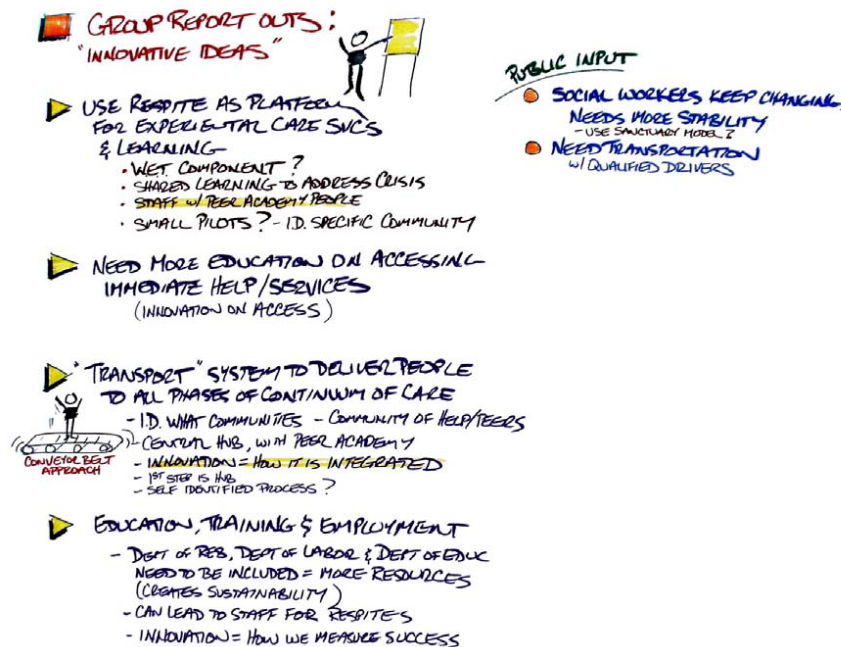 GROUP REPORT OUTS:
"INNOVATIVE IDEAS"
USE RESPITE AS PLATFORM
FOR EXPERIENTAL CARE SVCS
& LEARNING
• WET COMPONENT?
• SHARED LEARNING TO ADDRESS CRISIS
• STAFF W/ PEER ACADEMY PEOPLE
• SMALL PILOTS? - I.D. SPECIFIC COMMUNITY
NEED MORE EDUCATION ON ACCESSING
IMMEDIATE HELP/SERVICES
(INNOVATION ON ACCESS)
"TRANSPORT" SYSTEM TO DELIVER PEOPLE
TO ALL PHASES OF CONTINUUM OF CARE
- I.D. WHAT COMMUNITIES - COMMUNITY OF HELP/PEERS
- CENTRAL HUB, WITH PEER ACADEMY
- INNOVATION = HOW IT IS INTEGRATED
- 1ST STEP IS HUB
- SELF IDENTIFIED PROCESS?
CONVEYOR BELT
APPROACH
EDUCATION, TRAINING & EMPLOYMENT
- DEPT OF REB, DEPT OF LABOR & DEPT OF EDUC
NEED TO BE INCLUDED = MORE RESOURCES
(CREATES SUSTAINABILITY)
- CAN LEAD TO STAFF FOR RESPITES
- INNOVATION = HOW WE MEASURE SUCCESS
PUBLIC INPUT
SOCIAL WORKERS KEEP CHANGING,
NEEDS MORE STABILITY
- USE SANCTUARY MODEL?
NEED TRANSPORTATION
W/ QUALIFIED DRIVERS